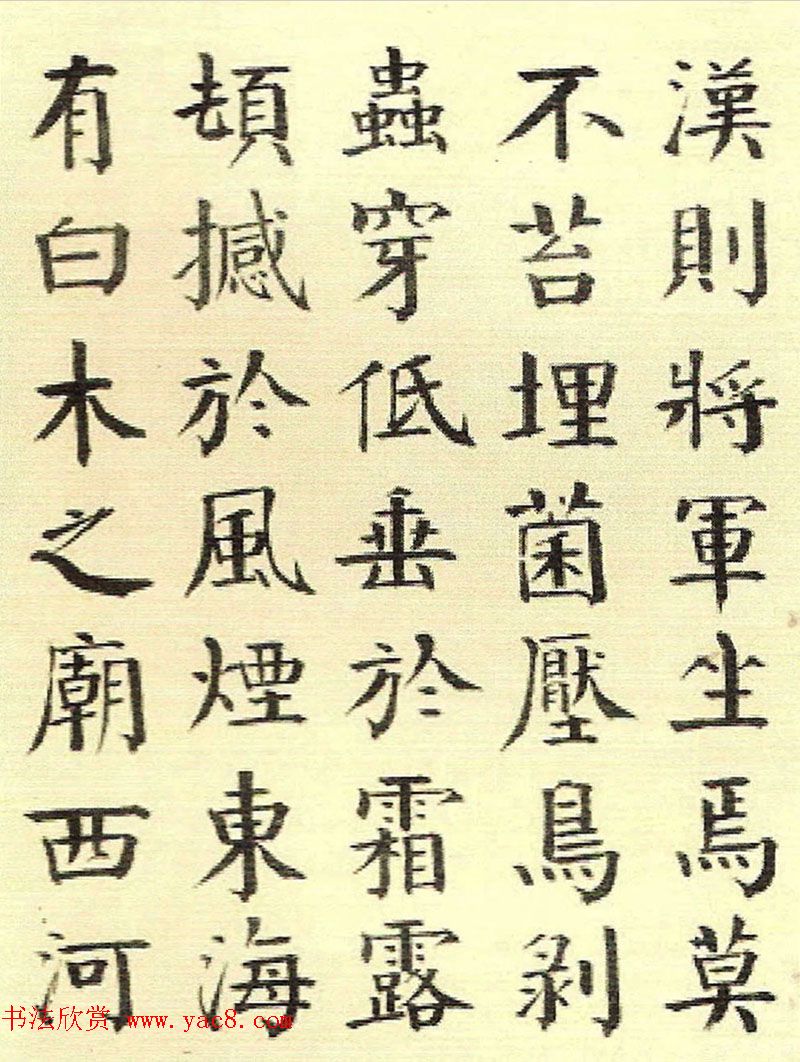 漢則將軍坐焉莫
不苔埋菌壓鳥剥
蟲穿低垂於霜露
頓撼於風煙東海
有白木之廟西河
书法欣赏 www.yac8.com